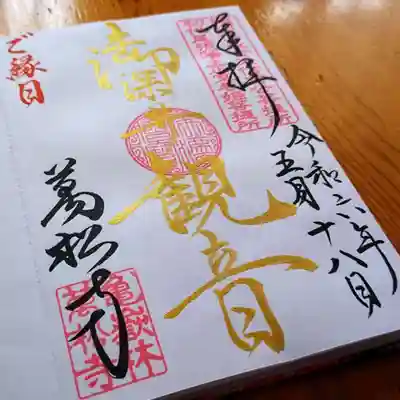 奉拝
令和六年
五月十八日
御深井観音
ご縁日
萬松寺
亀嶽林
萬松寺